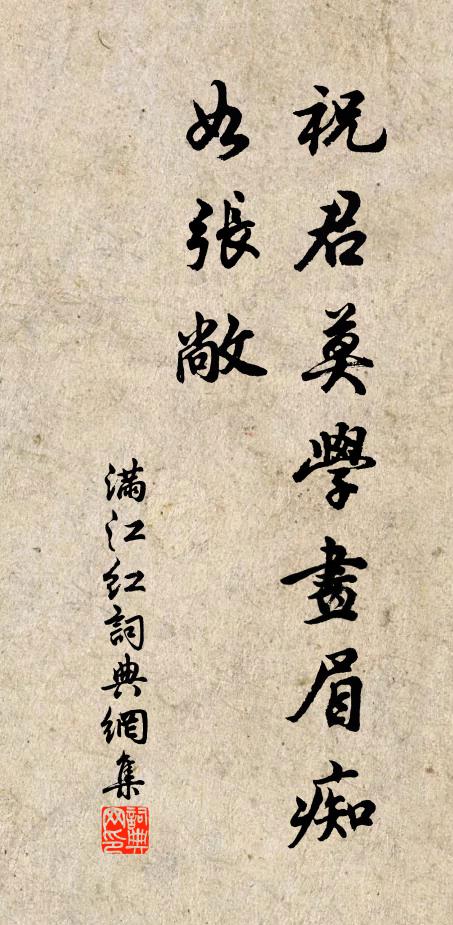 祝君莫學畫眉痴
如張敞
滿江红詞典網集
詞典網印